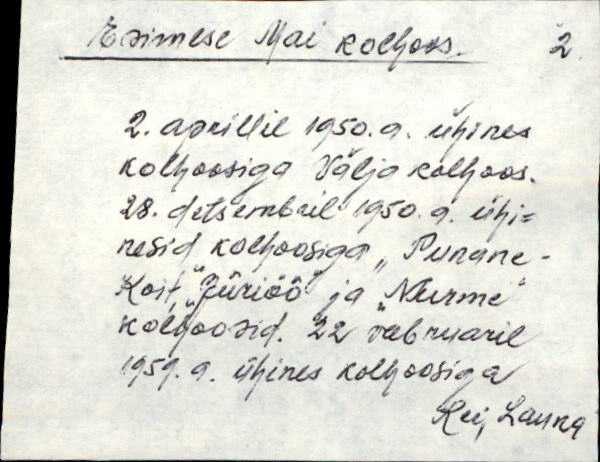 Esimese Mai kolhoos. 2.
2. aprillil 1950. a. ühines
kolhoosiga Välja kolhoos.
28. detsembril 1950. a. ühi=
nesid kolhoosiga „Punane-
Koit", „Jüriöö" ja „Nurme"
kolhoosid. 22 veebruaril
1959. a. ühines kolhoosiga